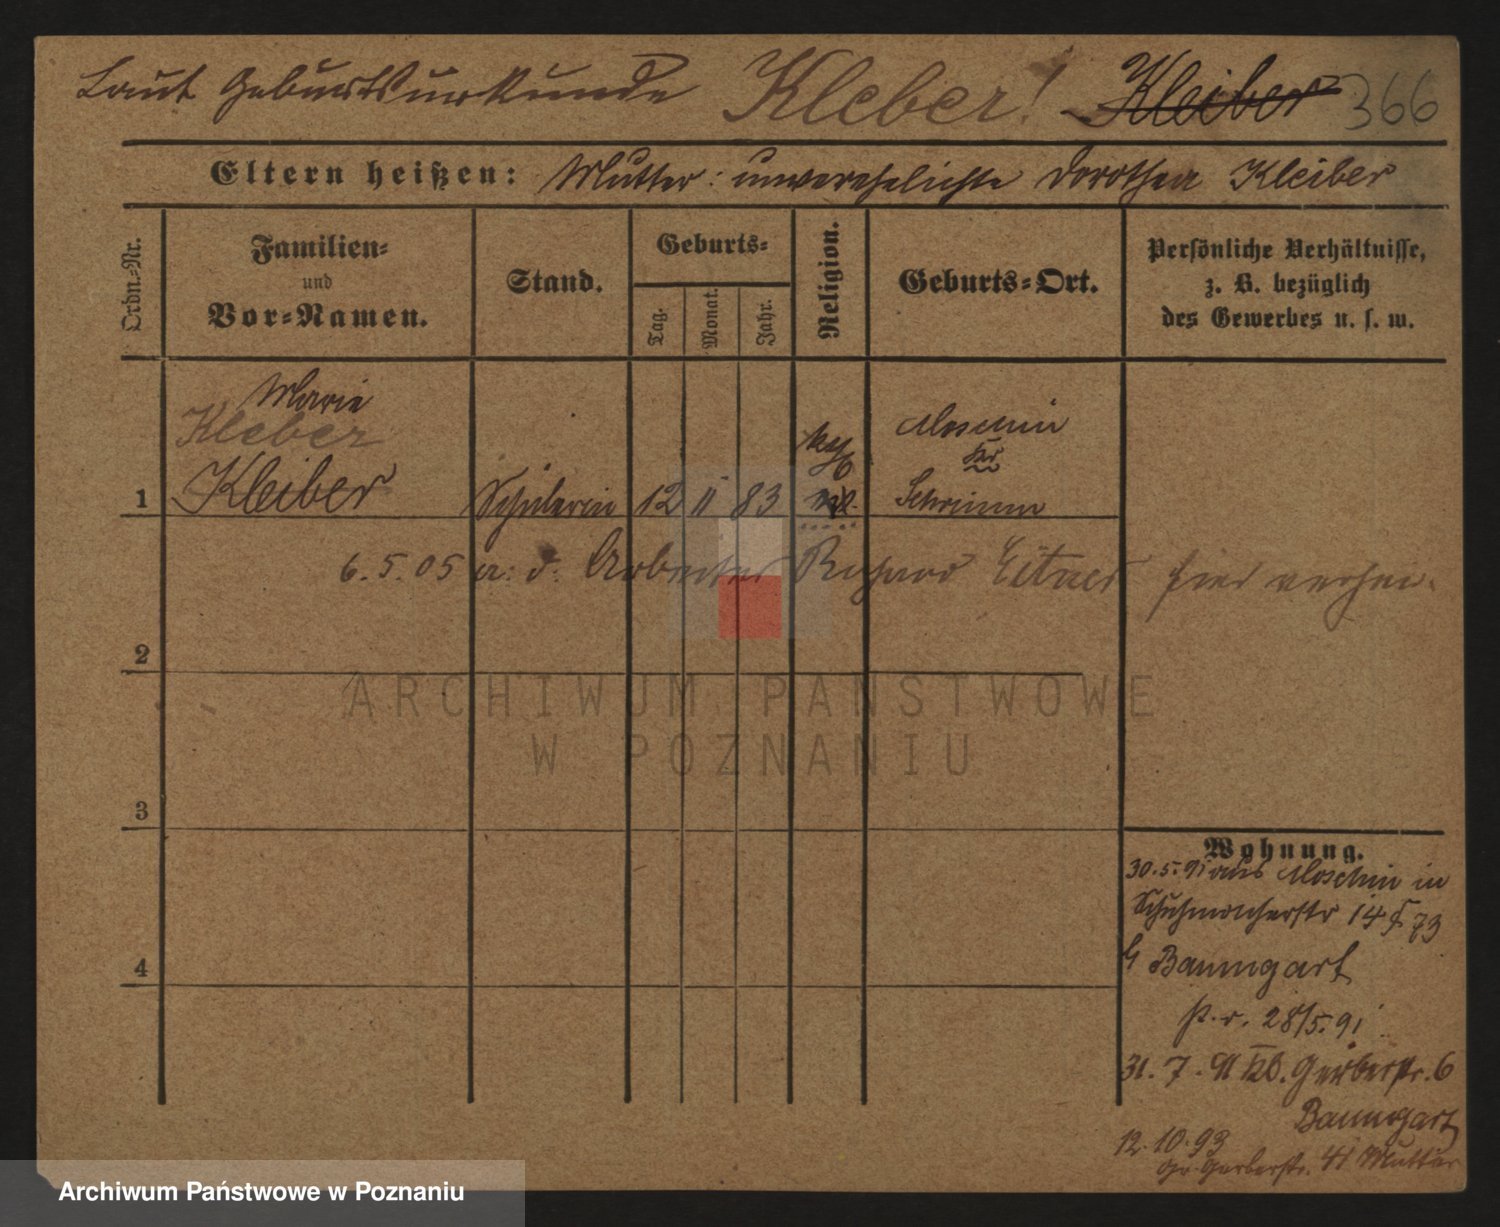 Laut Geburtsurkunde Kleber! Kleiber 366
Eltern heißen: Mutter: unverehelichte Dorothea Kleiber
Ordn.-Nr.
Familien-
und
Vor-Namen.
Stand.
Geburts-
Tag.
Monat.
Jahr.
Religion.
Geburts-Ort.
Persönliche Verhältnisse,
z. B. bezüglich
des Gewerbes u. s. w.
Marie
Kleber
Kleiber
1
Schülerin
12 11 83
Moschin
Kr
Schrimm
6.5.05 a. d. Arbeiter Richard Eitner hier verhei.
2
ARCHIWUM PAŃSTWOWE
W POZNANIU
3
Wohnung.
30.5.91 aus Moschin in
Schuhmacherstr 14 73
4
b Baumgart
P. r. 28/5.91
31. 7. 91 Gerberstr. 6
Baumgart
12.10.93
Gr. Gerberstr. 41 Mutter
Archiwum Państwowe w Poznaniu